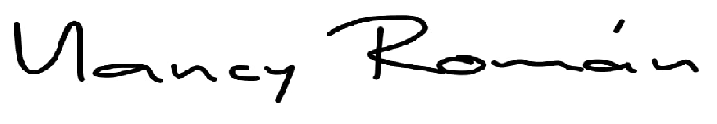 Nancy Román